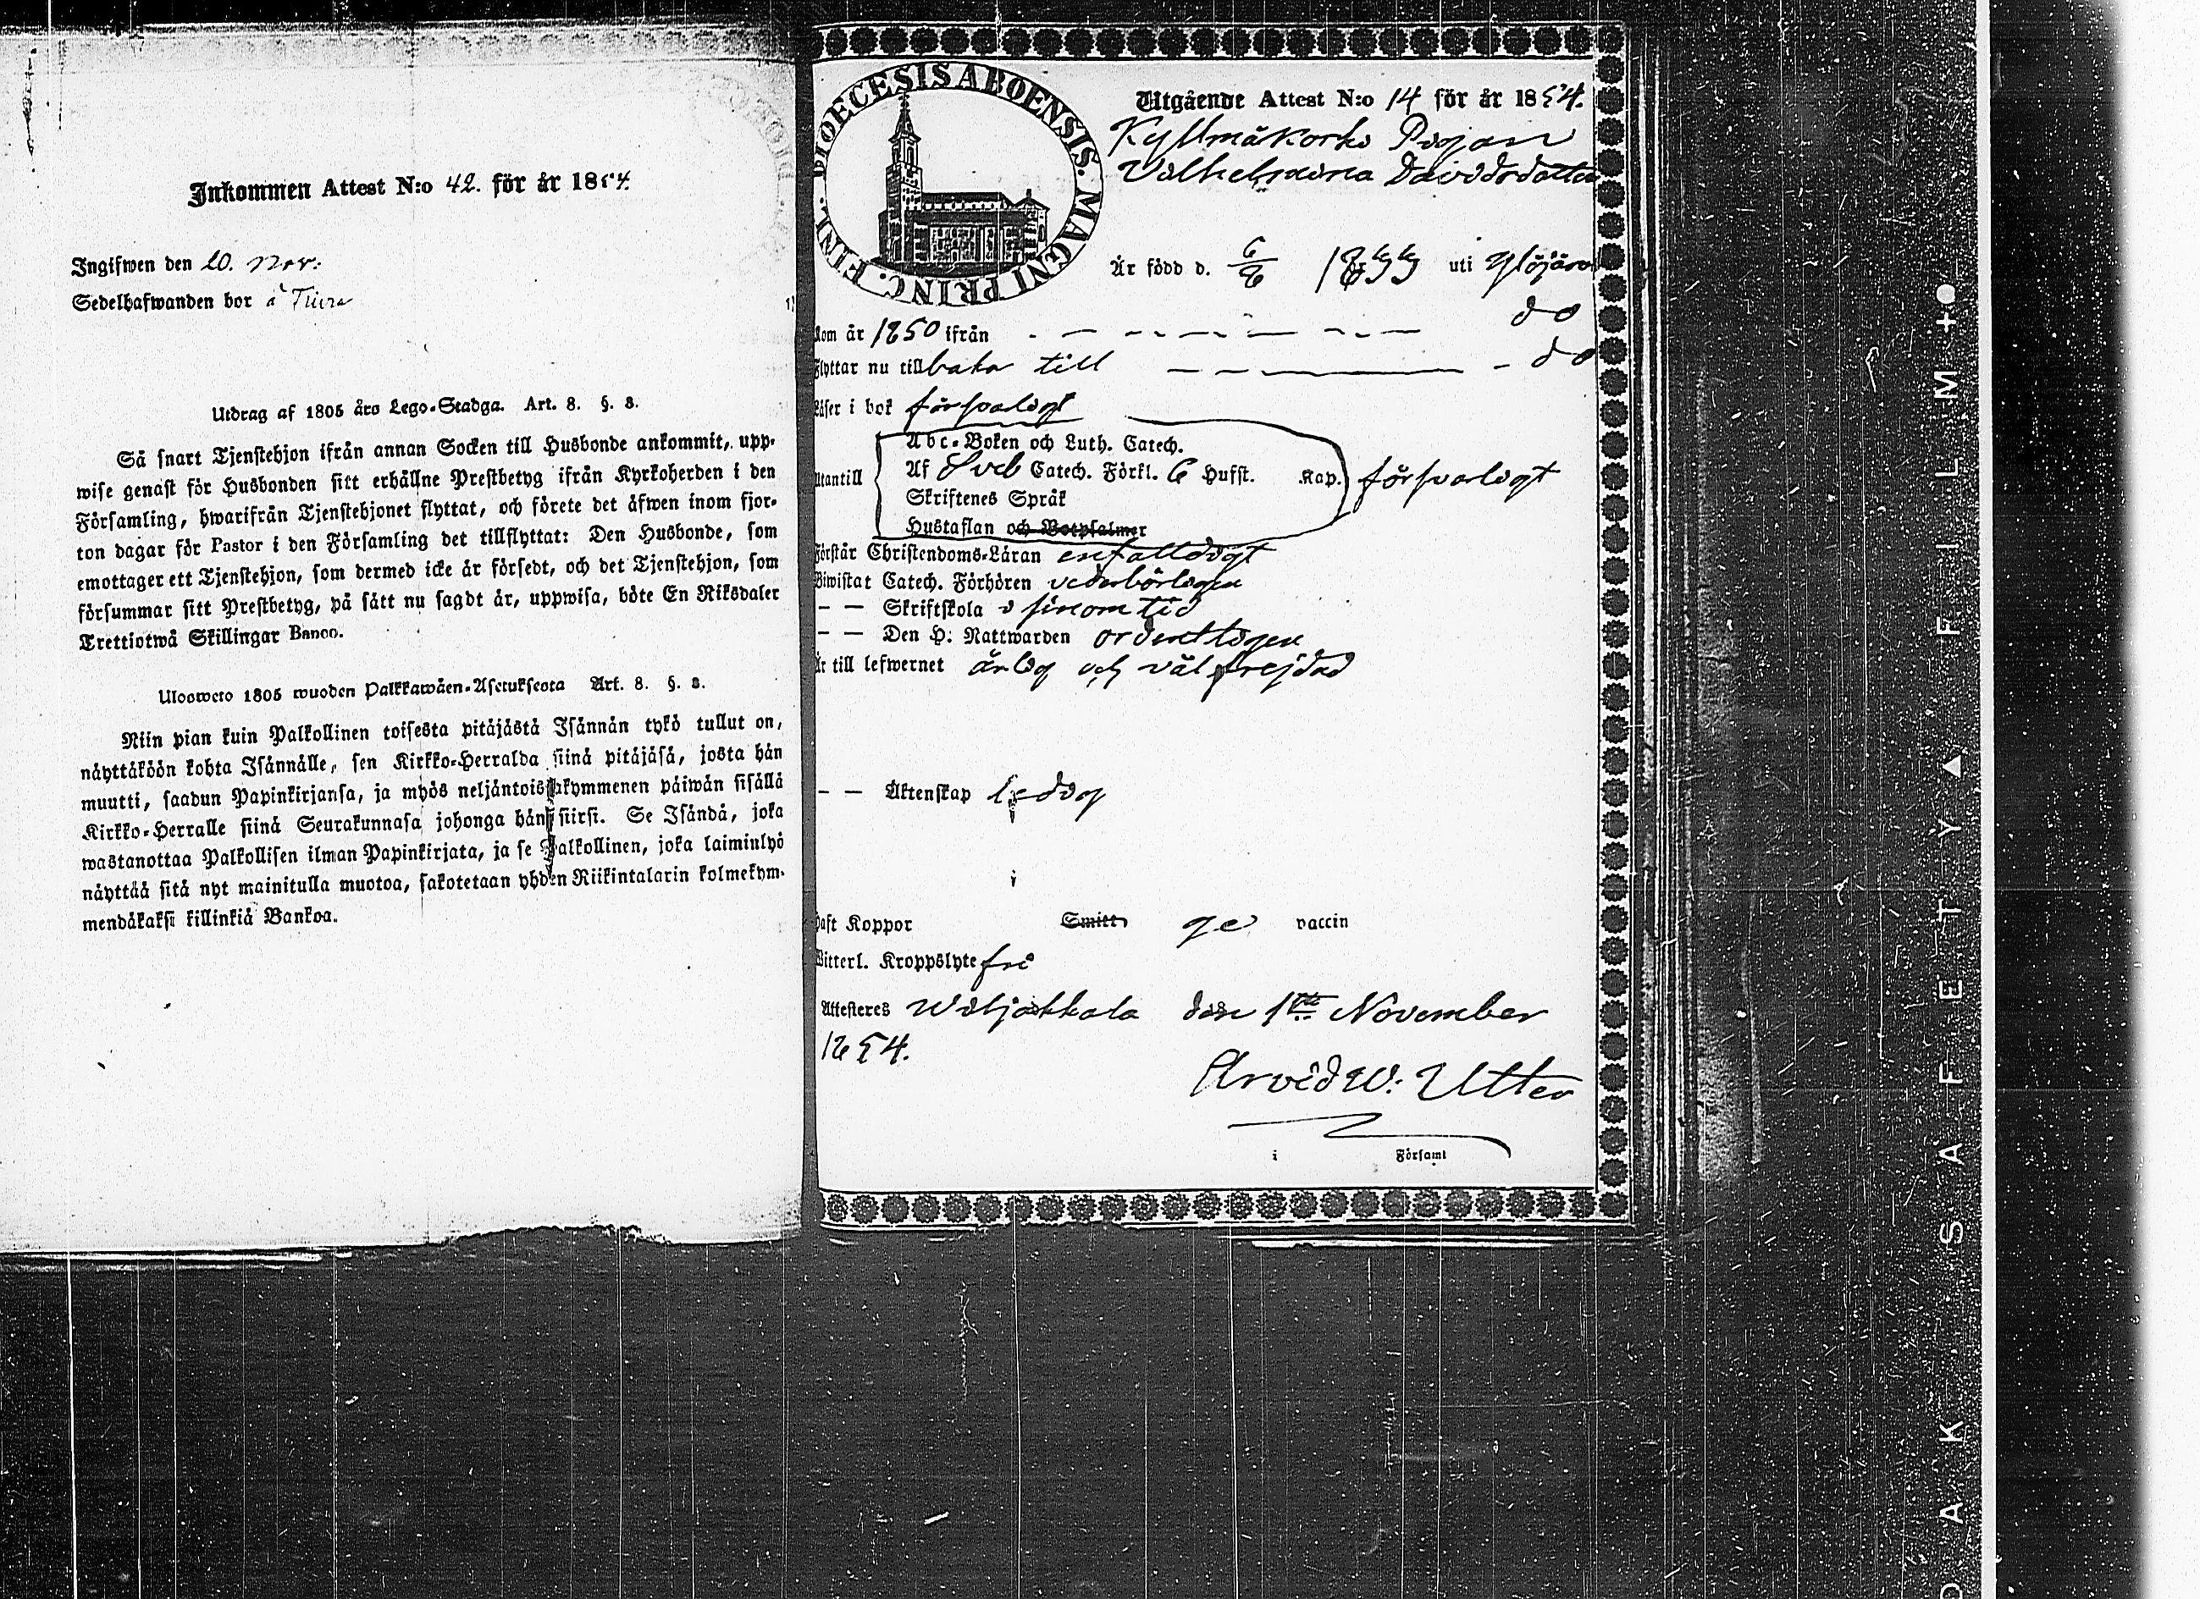 Inkommen Attest N:o 42. för år 1854.
Ingifwen den 20. Nov:
Sedelhafwanden bor å
Utdrag af 1805 års Lego-Stadga. Art. 8. §. 3.
Så snart Tjenstehjon ifrån annan Socken till Husbonde ankommit, upp-
wise genast för Husbonden sitt erhållne Prestbetyg ifrån Kyrkoherden i den
Församling, hwarifrån Tjenstehjonet flyttat, och förete det äfwen inom fjor-
ton dagar för Pastor i den Församling det tillflyttat: Den Husbonde, som
emottager ett Tjenstehjon, som dermed icke är försedt, och det Tjenstehjon, som
försummar sitt Prestbetyg, på sätt nu sagdt är, uppwisa, böte En Riksdaler
Trettiotwå Skillingar Banco.
Ulosweto 1805 wuoden Palkkawäen-Asetuksesta Art. 8. §. 3.
Niin pian kuin Palkollinen toisesta pitäjästä Isännän tykö tullut on,
näyttäköön kohta Isännälle, sen Kirkko-Herralda siinä pitäjäsä, josta hän
muutti, saadun Papinkirjansa, ja myös neljäntoistakymmenen päiwän sisällä
Kirkko-Herralle siinä Seurakunnasa johonga hän siirsi. Se Isändä, joka
wastanottaa Palkollisen ilman Papinkirjata, ja se Palkollinen, joka laiminlyö
näyttää sitä nyt mainitulla muotoa, sakotetaan yhden Riikintalarin kolmekym-
mendäkaksi killinkiä Bankoa.
DIOECESIS ABOENSIS. MAGNI PRINC. FINL.
Utgående Attest N:o 14 för år 1854.
Kyllmäkorho Pigan
Vilhelmina Davidsdotter
Är född d. 6/6 1833 uti Ylöjärvi
Kom år 1850 ifrån do
Flyttar nu tillbaka till do
Läser i bok försvarligt
Abc-Boken och Luth. Catech.
Utantill Af Sveb Catech. Förkl. 6 Hufst. Kap. försvarligt
Skriftenes Språk
Hustaflan och Botpsalmer
Förstår Christendoms-Läran enfalldigt
Biwistat Catech. Förhören vederbörligen
— — Skriftskola i sinom tid
— — Den H: Nattwarden ordentligen
Är till lefwernet ärlig och välfrejdad
— — Äktenskap ledig
Haft Koppor Smitt ge vaccin
Witterl. Kroppslyte fri
Attesteres Wiljakkala den 1ste November
1854.
Arvid W: Utter
i Församl
SAFETY ▲ FILM